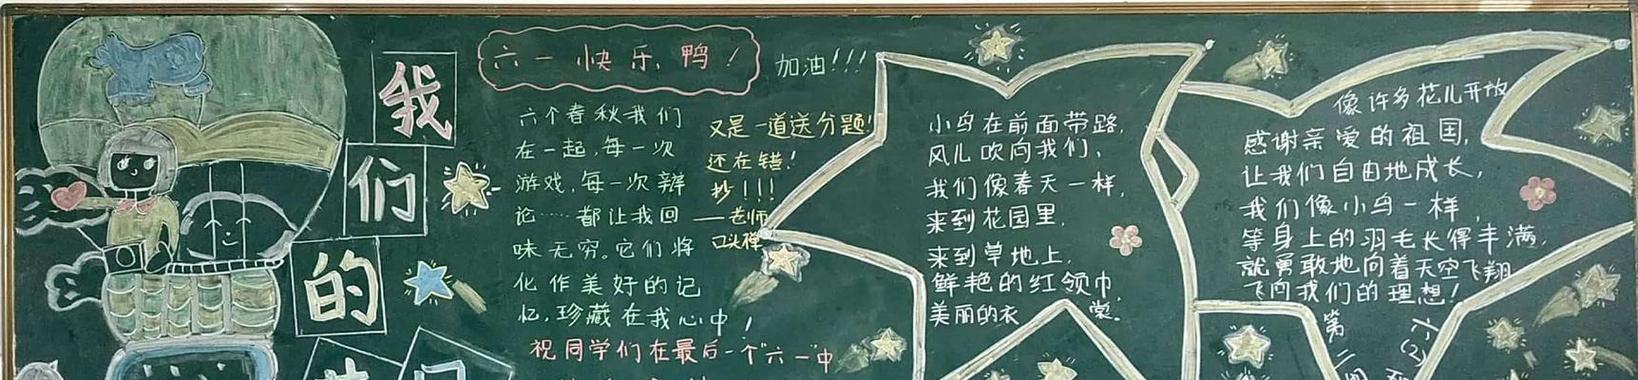 我们的
六一快乐鸭！
加油！！！
六个春秋我们
在一起，每一次
游戏，每一次辩
论……都让我回
味无穷。它们将
化作美好的记
忆，珍藏在我心中！
祝同学们在最后一个"六一"中
又是一道送分题！
还在错！
抄！！！
——老师
口头禅
小鸟在前面带路，
风儿吹向我们，
我们像春天一样，
来到花园里，
来到草地上，
鲜艳的红领巾，
美丽的衣裳。
像许多花儿开放
感谢亲爱的祖国，
让我们自由地成长，
我们像小鸟一样，
等身上的羽毛长得丰满，
就勇敢地向着天空飞翔
飞向我们的理想！
第
六(2)